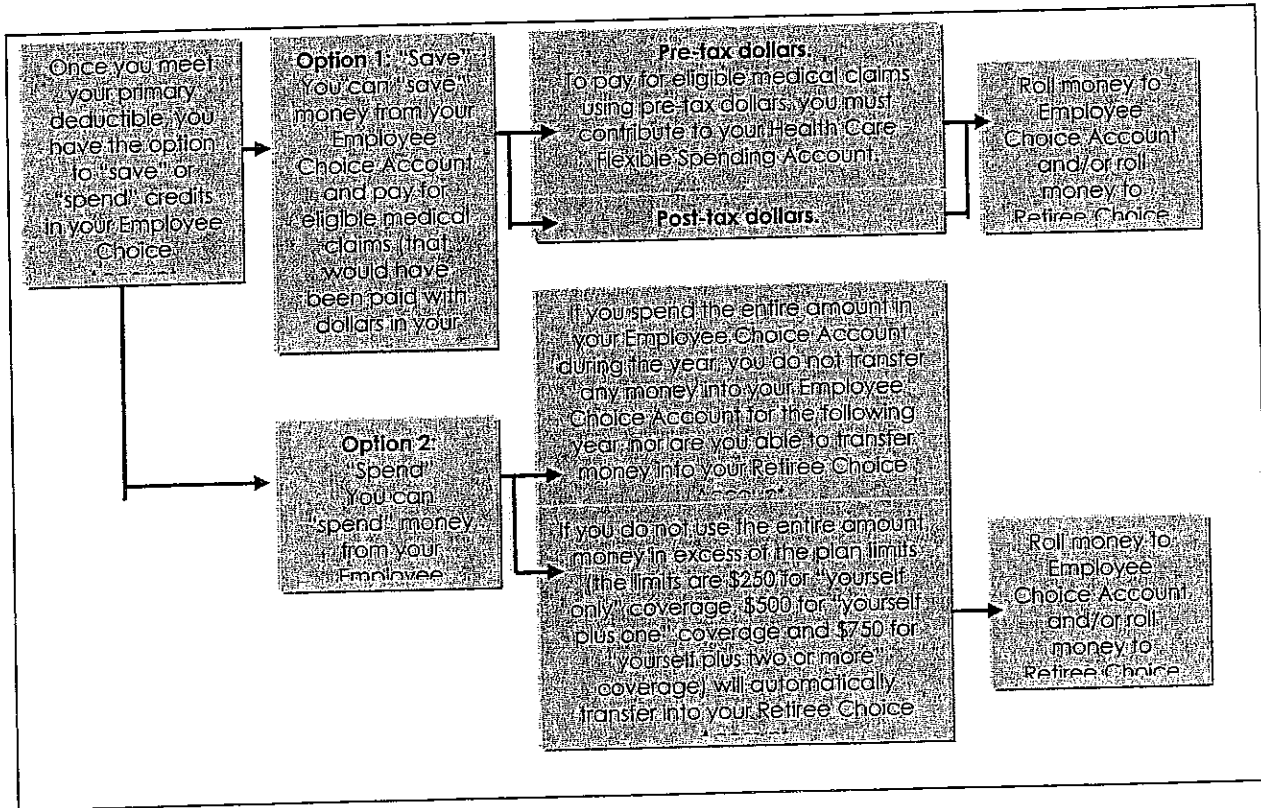 Once you meet
your primary
deductible, you
have the option
to "save" or
"spend" credits
in your Employee
Choice
Option 1: "Save"
You can "save"
money from your
Employee
Choice Account
and pay for
eligible medical
claims (that
would have
been paid with
dollars in your
Pre-tax dollars.
To pay for eligible medical claims
using pre-tax dollars, you must
contribute to your Health Care
Flexible Spending Account.
Post-tax dollars.
Roll money to
Employee
Choice Account
and/or roll
money to
Retiree Choice
Option 2:
"Spend"
You can
"spend" money
from your
Employee
If you spend the entire amount in
your Employee Choice Account
during the year, you do not transfer
any money into your Employee
Choice Account for the following
year, nor are you able to transfer
money into your Retiree Choice
Account
If you do not use the entire amount,
money in excess of the plan limits
(the limits are $250 for "yourself
only" coverage, $500 for "yourself
plus one" coverage and $750 for
"yourself plus two or more"
coverage) will automatically
transfer into your Retiree Choice
Roll money to
Employee
Choice Account
and/or roll
money to
Retiree Choice